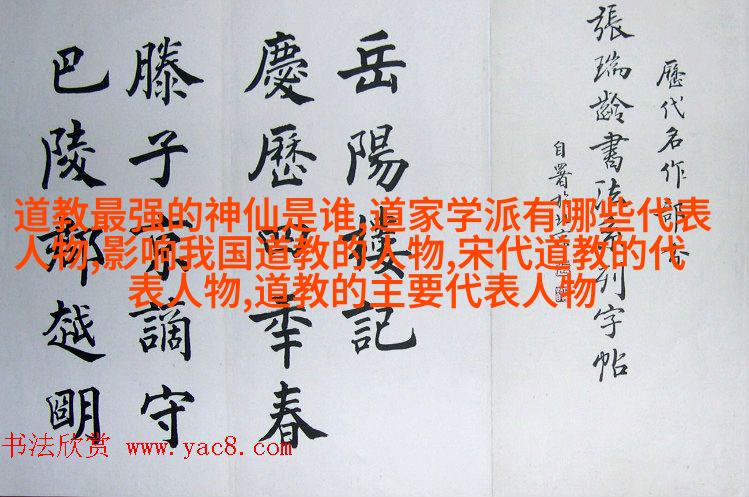 歷代名作部分
張瑞齡書法系列字帖
自署
岳陽樓記
慶歷四年春
滕子京謫守
巴陵郡越明
道教最强的神仙是谁,道家学派有哪些代表
人物,影响我国道教的人物,宋代道教的代
表人物,道教的主要代表人物
书法欣赏 www.yac8.com